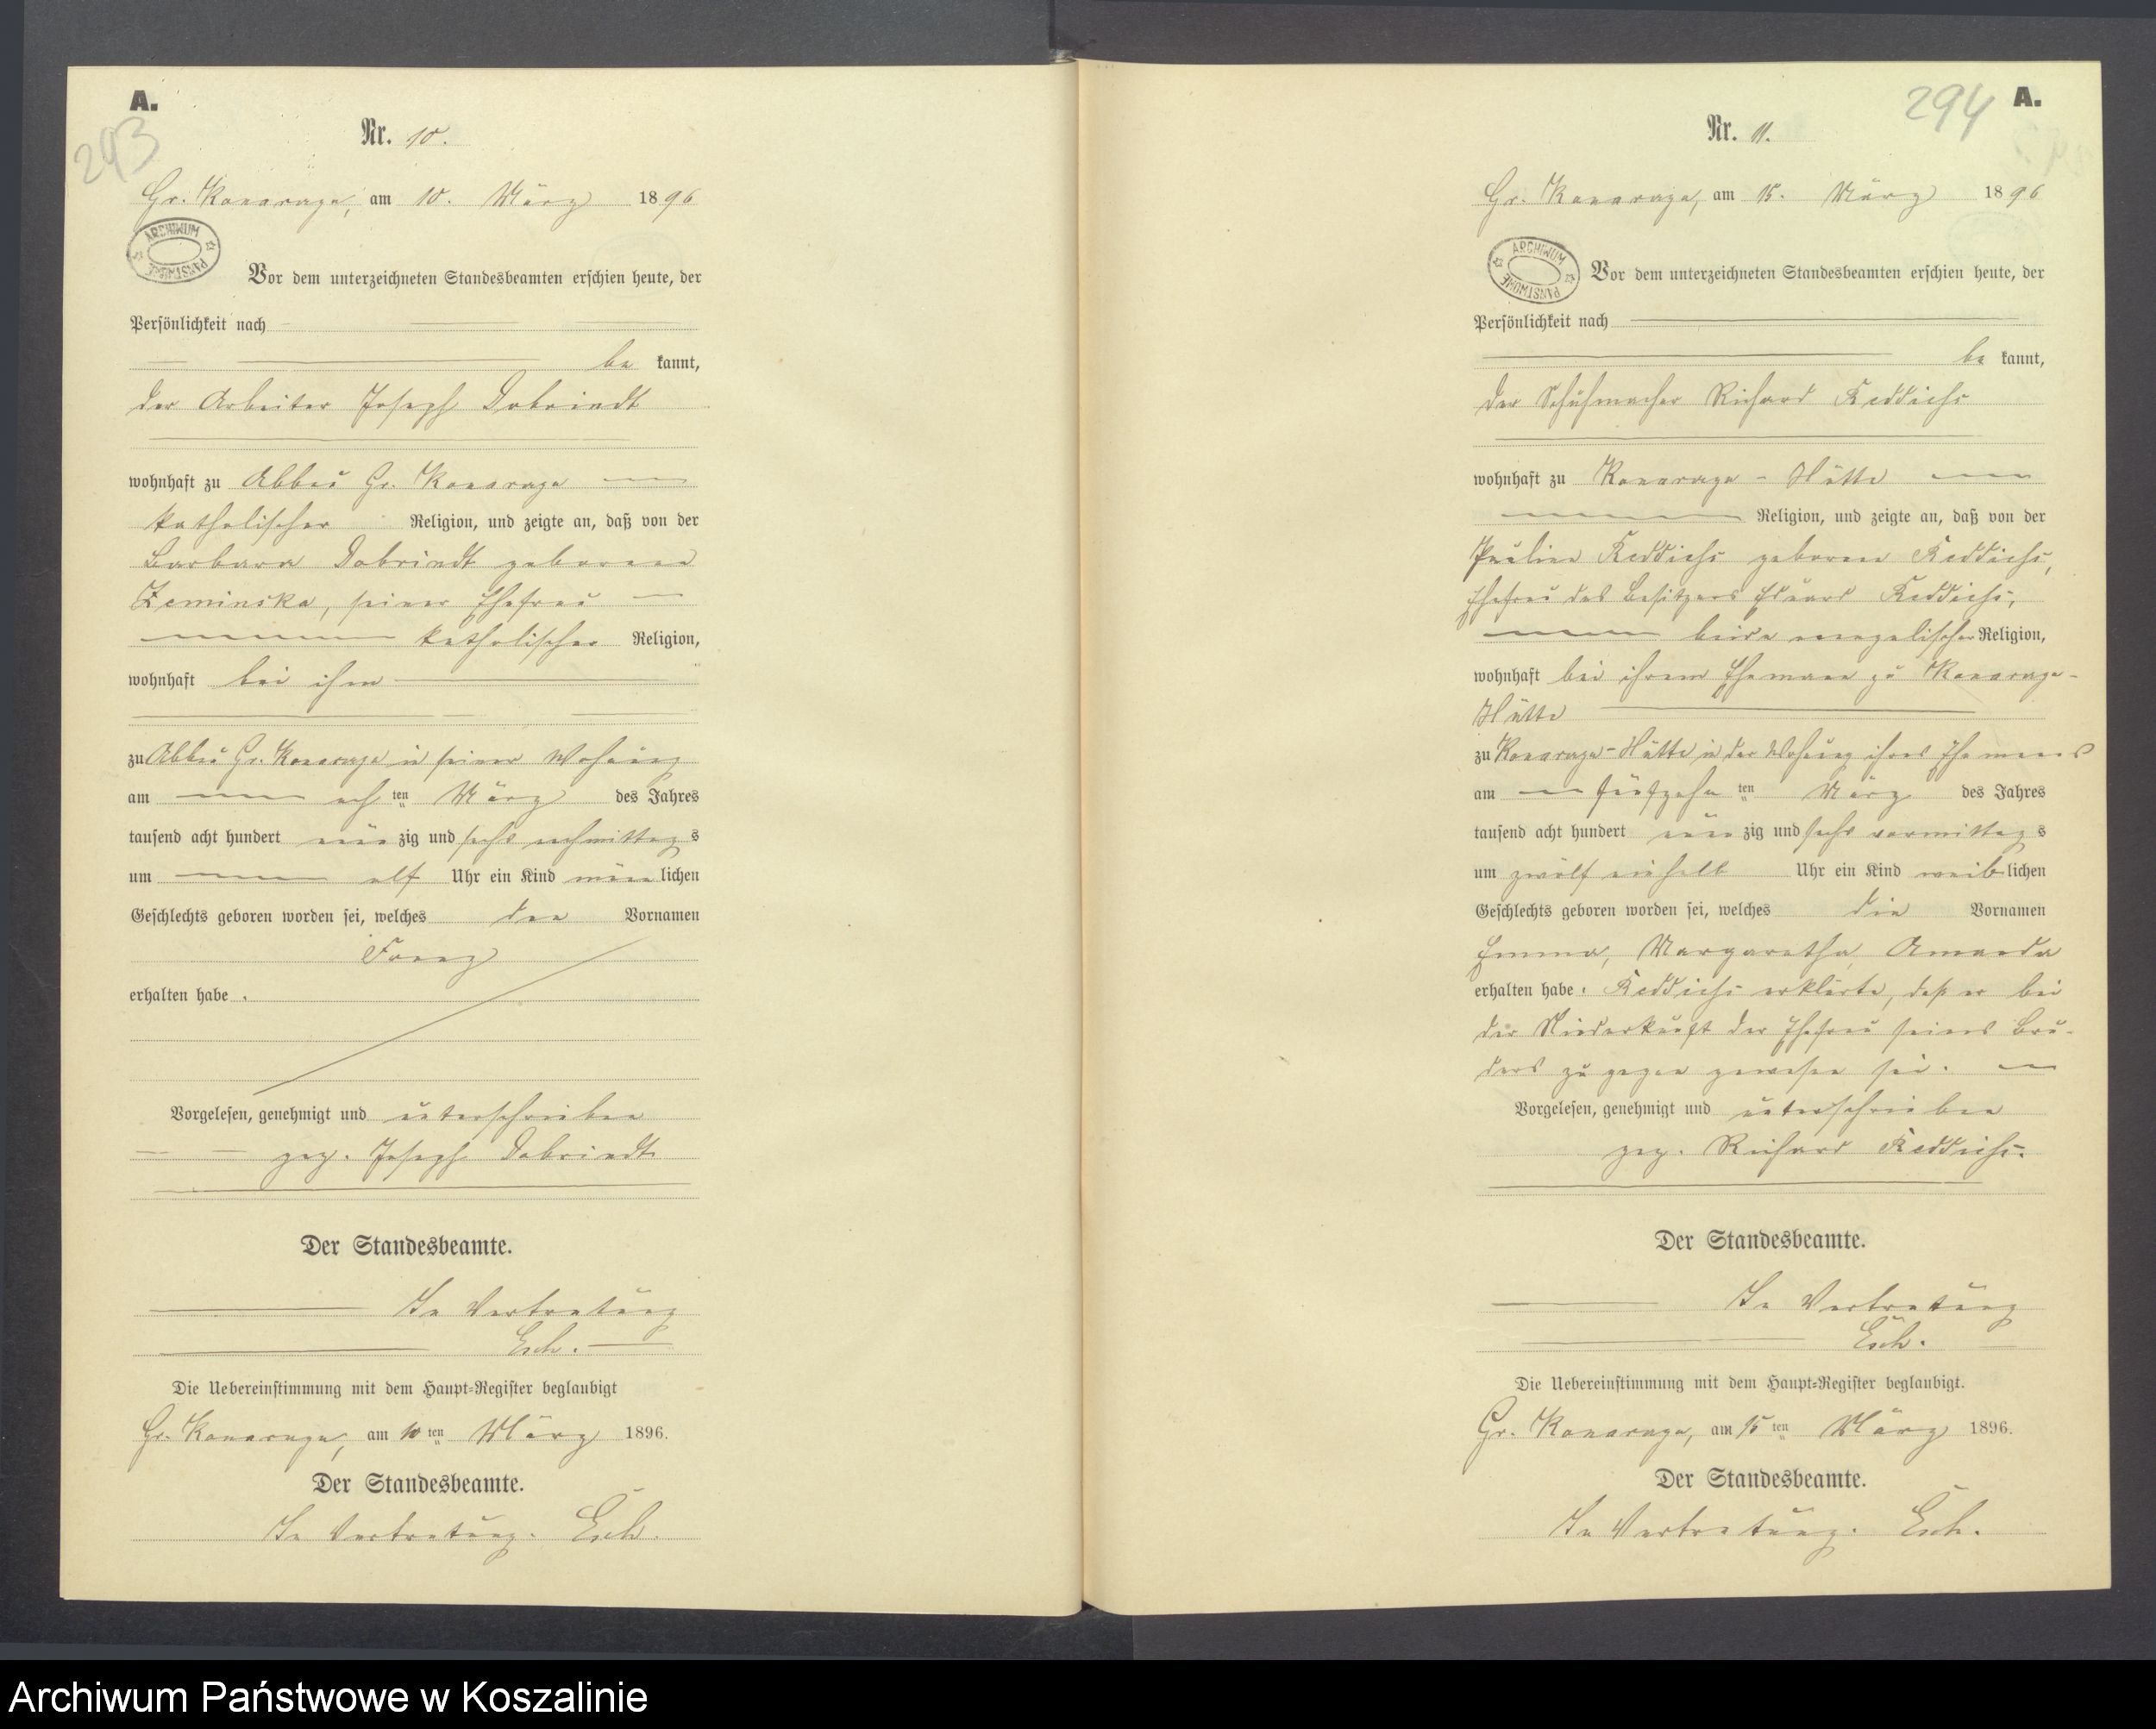 A.
293
Nr. 10.
Gr. Konarczyn, am 10. März 1896
ARCHIWUM PAŃSTWOWE
Vor dem unterzeichneten Standesbeamten erschien heute, der
Persönlichkeit nach
be kannt,
der Arbeiter Joseph Dobrindt
wohnhaft zu Abbau Gr. Konarczyn
katholischer Religion, und zeigte an, daß von der
Barbara Dobrindt geborenen
Zeminska, seiner Ehefrau
katholischer Religion,
wohnhaft bei ihm
zu Abbau Gr. Konarczyn in seiner Wohnung
am ach ten März des Jahres
tausend acht hundert neun zig und sechs nachmittag s
um elf Uhr ein Kind männ lichen
Geschlechts geboren worden sei, welches den Vornamen
Franz
erhalten habe .
Vorgelesen, genehmigt und unterschrieben
gez. Joseph Dobrindt
Der Standesbeamte.
In Vertretung
Esch.
Die Uebereinstimmung mit dem Haupt-Register beglaubigt
Gr. Konarczyn, am 10 ten März 1896.
Der Standesbeamte.
In Vertretung. Esch.
294 A.
Nr. 11.
Gr. Konarczyn, am 15. März 1896
ARCHIWUM PAŃSTWOWE
Vor dem unterzeichneten Standesbeamten erschien heute, der
Persönlichkeit nach
be kannt,
der Schuhmacher Richard Reddichs
wohnhaft zu Konarczyn-Hütte
Religion, und zeigte an, daß von der
Pauline Reddichs geborene Reddichs,
Ehefrau des Besitzers Eduard Reddichs,
beide evangelischer Religion,
wohnhaft bei ihrem Ehemann zu Konarczyn-
Hütte
zu Konarczyn-Hütte in der Wohnung ihres Ehemanns
am fünfzehn ten März des Jahres
tausend acht hundert neun zig und sechs vormittag s
um zwölf einhalb Uhr ein Kind weib lichen
Geschlechts geboren worden sei, welches die Vornamen
Emma, Margaretha, Amanda
erhalten habe. Reddichs erklärte, daß er bei
der Niederkunft der Ehefrau seines Bru-
ders zugegen gewesen sei.
Vorgelesen, genehmigt und unterschrieben
gez. Richard Reddichs.
Der Standesbeamte.
In Vertretung
Esch.
Die Uebereinstimmung mit dem Haupt-Register beglaubigt.
Gr. Konarczyn, am 15 ten März 1896.
Der Standesbeamte.
In Vertretung. Esch.
Archiwum Państwowe w Koszalinie